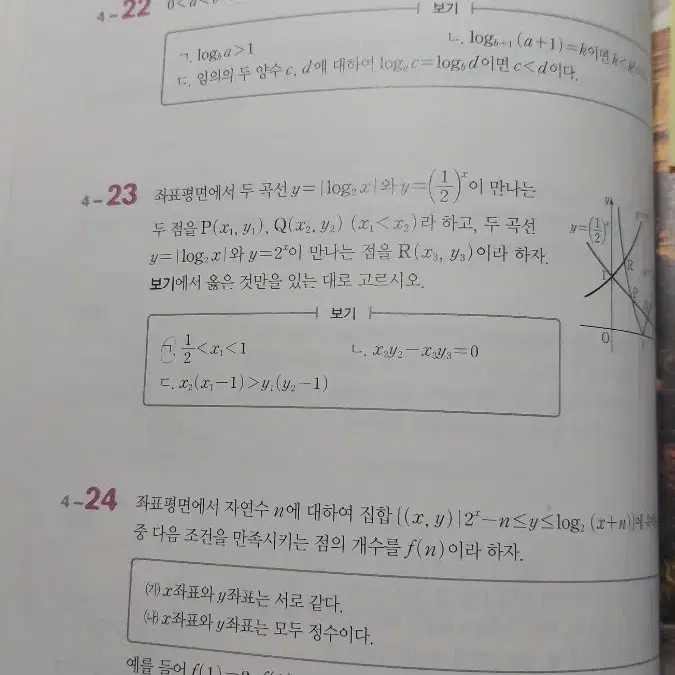 4-22
보기
ㄱ. log_b a>1 ㄴ. log_{b+1} (a+1)=k이면 k<
ㄷ. 임의의 두 양수 c, d에 대하여 log_a c=log_b d이면 c<d이다.
4-23 좌표평면에서 두 곡선 y=|log₂x|와 y=(1/2)^x이 만나는
두 점을 P(x₁, y₁), Q(x₂, y₂) (x₁<x₂)라 하고, 두 곡선
y=|log₂x|와 y=2^x이 만나는 점을 R(x₃, y₃)이라 하자.
보기에서 옳은 것만을 있는 대로 고르시오.
y
y=(1/2)^x
1
O
보기
ㄱ. 1/2<x₁<1 ㄴ. x₂y₂-x₃y₃=0
ㄷ. x₂(x₁-1)>y₁(y₂-1)
4-24 좌표평면에서 자연수 n에 대하여 집합 {(x, y)|2^x-n≤y≤log₂(x+n)}에
중 다음 조건을 만족시키는 점의 개수를 f(n)이라 하자.
㈎ x좌표와 y좌표는 서로 같다.
㈏ x좌표와 y좌표는 모두 정수이다.
예를 들어